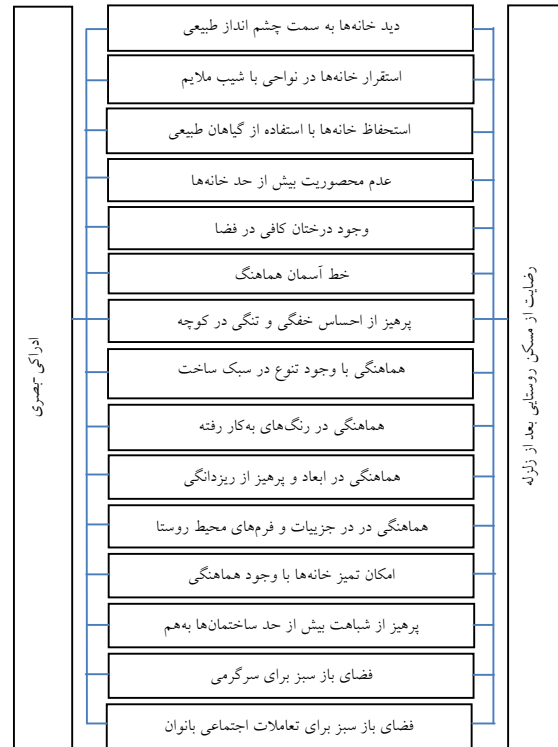 رضایت از مسکن روستایی بعد از زلزله
دید خانه‌ها به سمت چشم انداز طبیعی
استقرار خانه‌ها در نواحی با شیب ملایم
استحفاظ خانه‌ها با استفاده از گیاهان طبیعی
عدم محصوریت بیش از حد خانه‌ها
وجود درختان کافی در فضا
خط آسمان هماهنگ
پرهیز از احساس خفگی و تنگی در کوچه
هماهنگی با وجود تنوع در سبک ساخت
هماهنگی در رنگ‌های به‌کار رفته
هماهنگی در ابعاد و پرهیز از ریزدانگی
هماهنگی در در جزییات و فرم‌های محیط روستا
امکان تمیز خانه‌ها با وجود هماهنگی
پرهیز از شباهت بیش از حد ساختمان‌ها به‌هم
فضای باز سبز برای سرگرمی
فضای باز سبز برای تعاملات اجتماعی بانوان
ادراکی -بصری